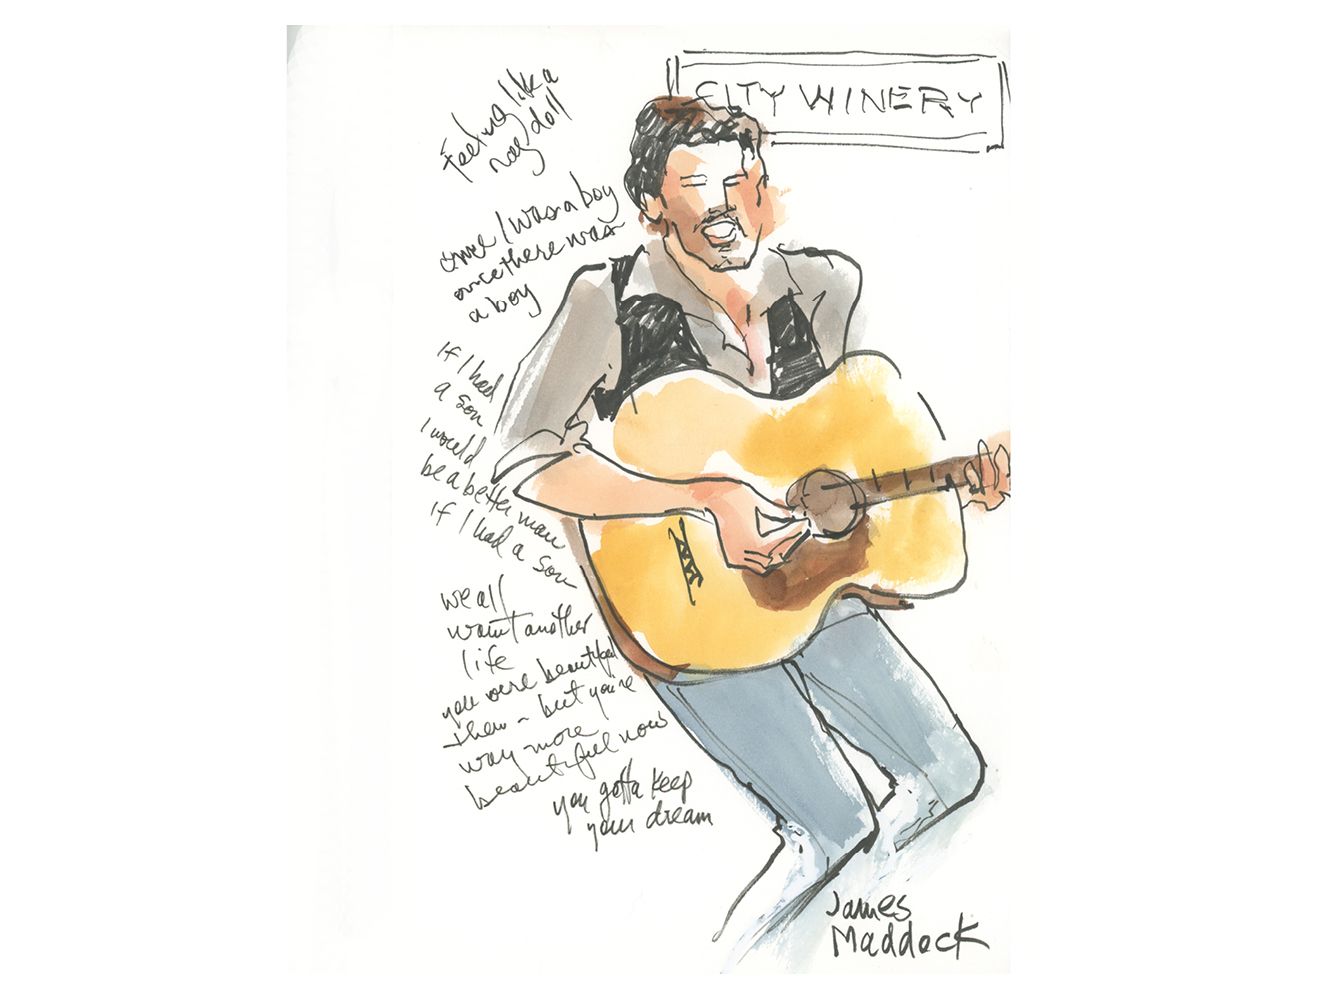 CITY WINERY
Feeling like a
rag doll
once I was a boy
once there was
a boy
if I had
a son
I would
be a better man
if I had a son
we all
want another
life
you were beautiful
then - but you're
way more
beautiful now
you gotta keep
your dream
James
Maddock